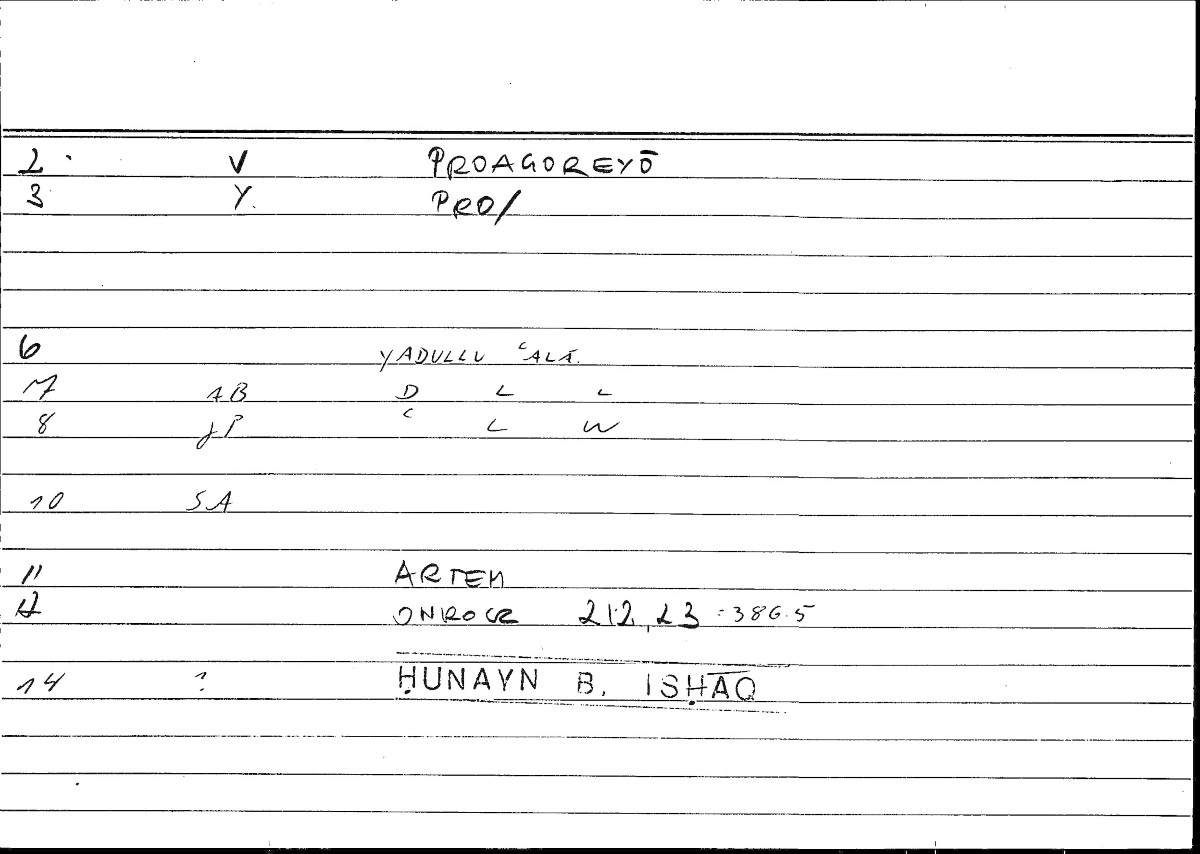 2 V PROAGOREYŌ
3 Y. PRO/
6 YADULLU ʿALĀ.
7 AB D L L
8 JP ʿ L W
10 SA
11 ARTEM
12 ONIROCR 212,23 = 386.5
14 ? ḤUNAYN B. ISḤĀQ